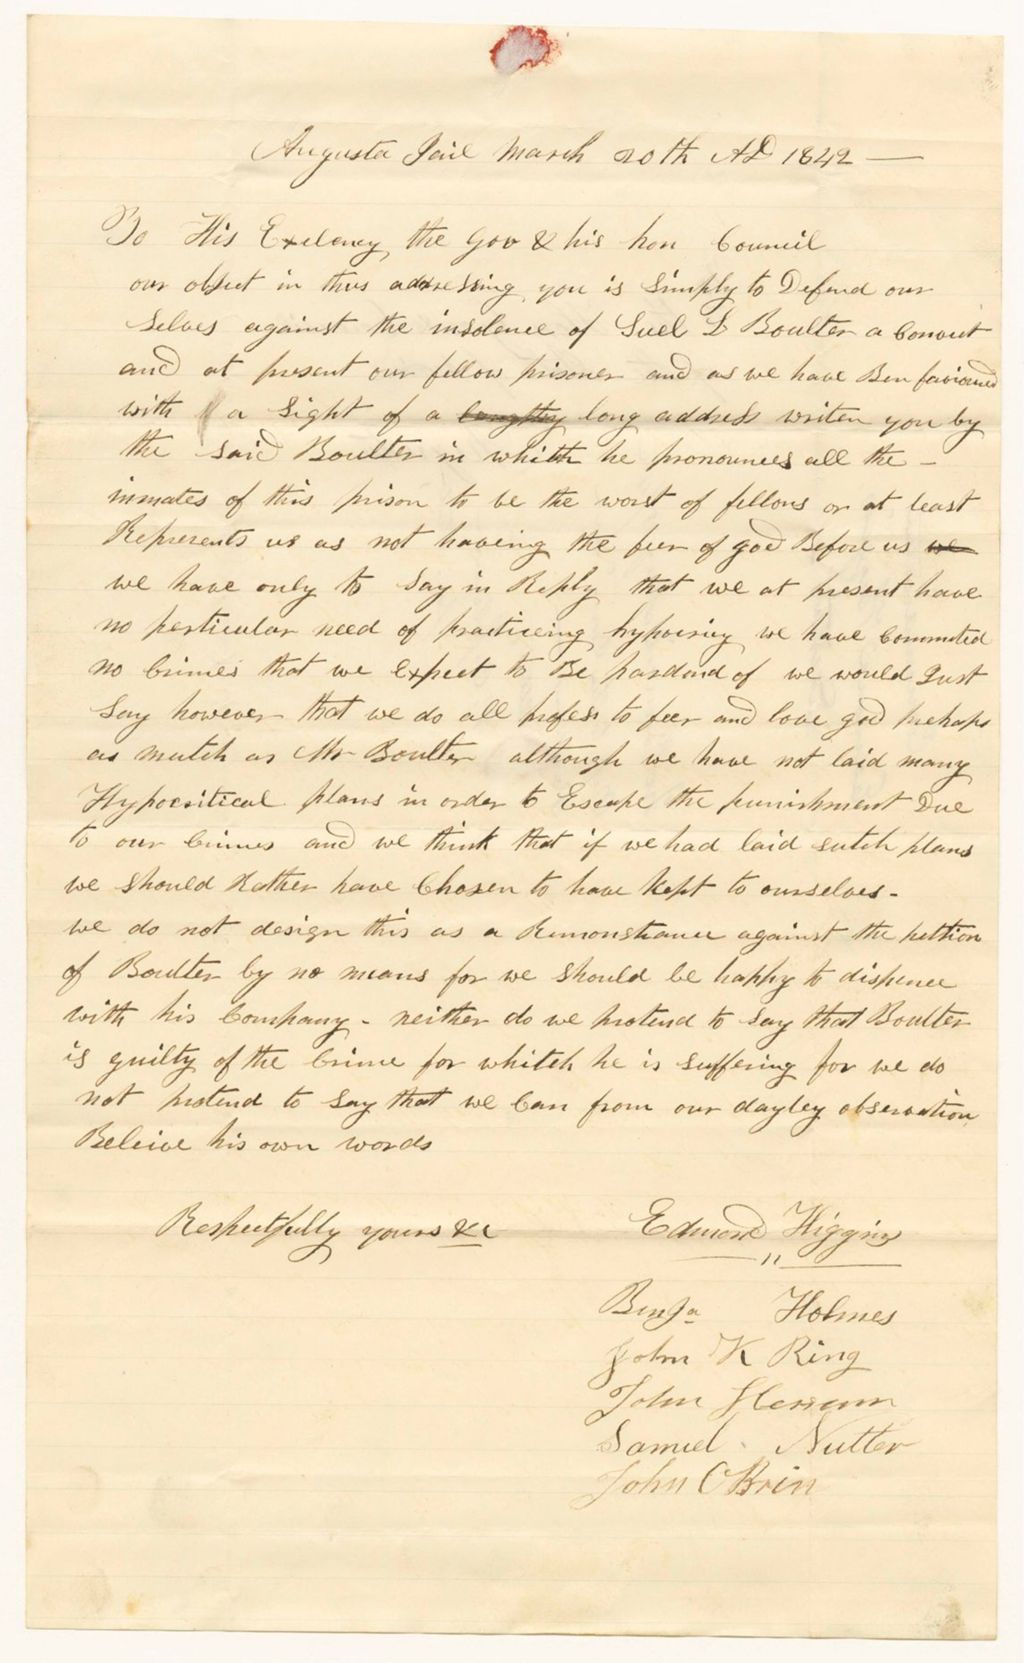 Augusta Jail March 20th AD 1842 —
To His Exelency, the Gov & his hon Council
our object in thus addressing you is Simply to Defend our
selves against the insolence of Suel L Boulter a Convict
and at present our fellow prisoner and as we have Ben favioured
with a Sight of a lengthy long address writen you by
the said Boulter in whitth he pronounces all the –
inmates of this prison to be the worst of fellons or at least
Represents us as not haveing the feer of god Before us we
we have only to Say in Reply that we at present have
no perticular need of practiceing hypocricy we have Commited
no Crimes that we Expect to Be pardond of we would Just
Say however that we do all profess to feer and love god perhaps
as mutch as Mr Boulter although we have not laid many
Hypocritical plans in order to Escape the punishment Due
to our Crimes and we think that if we had laid sutch plans
we should Rather have Chosen to have Kept to ourselves -
we do not design this as a Remonstrance against the petition
of Boulter by no means for we should be happy to dispence
with his Company - neither do we pretend to Say that Boulter
is guilty of the Crime for whitch he is suffering for we do
not pretend to Say that we Can from our dayley observation
Beleive his own words
Respectfully yours &c
Edmond Higgins
"
Benja Holmes
John K Ring
John
Samuel Nutter
John OBrin